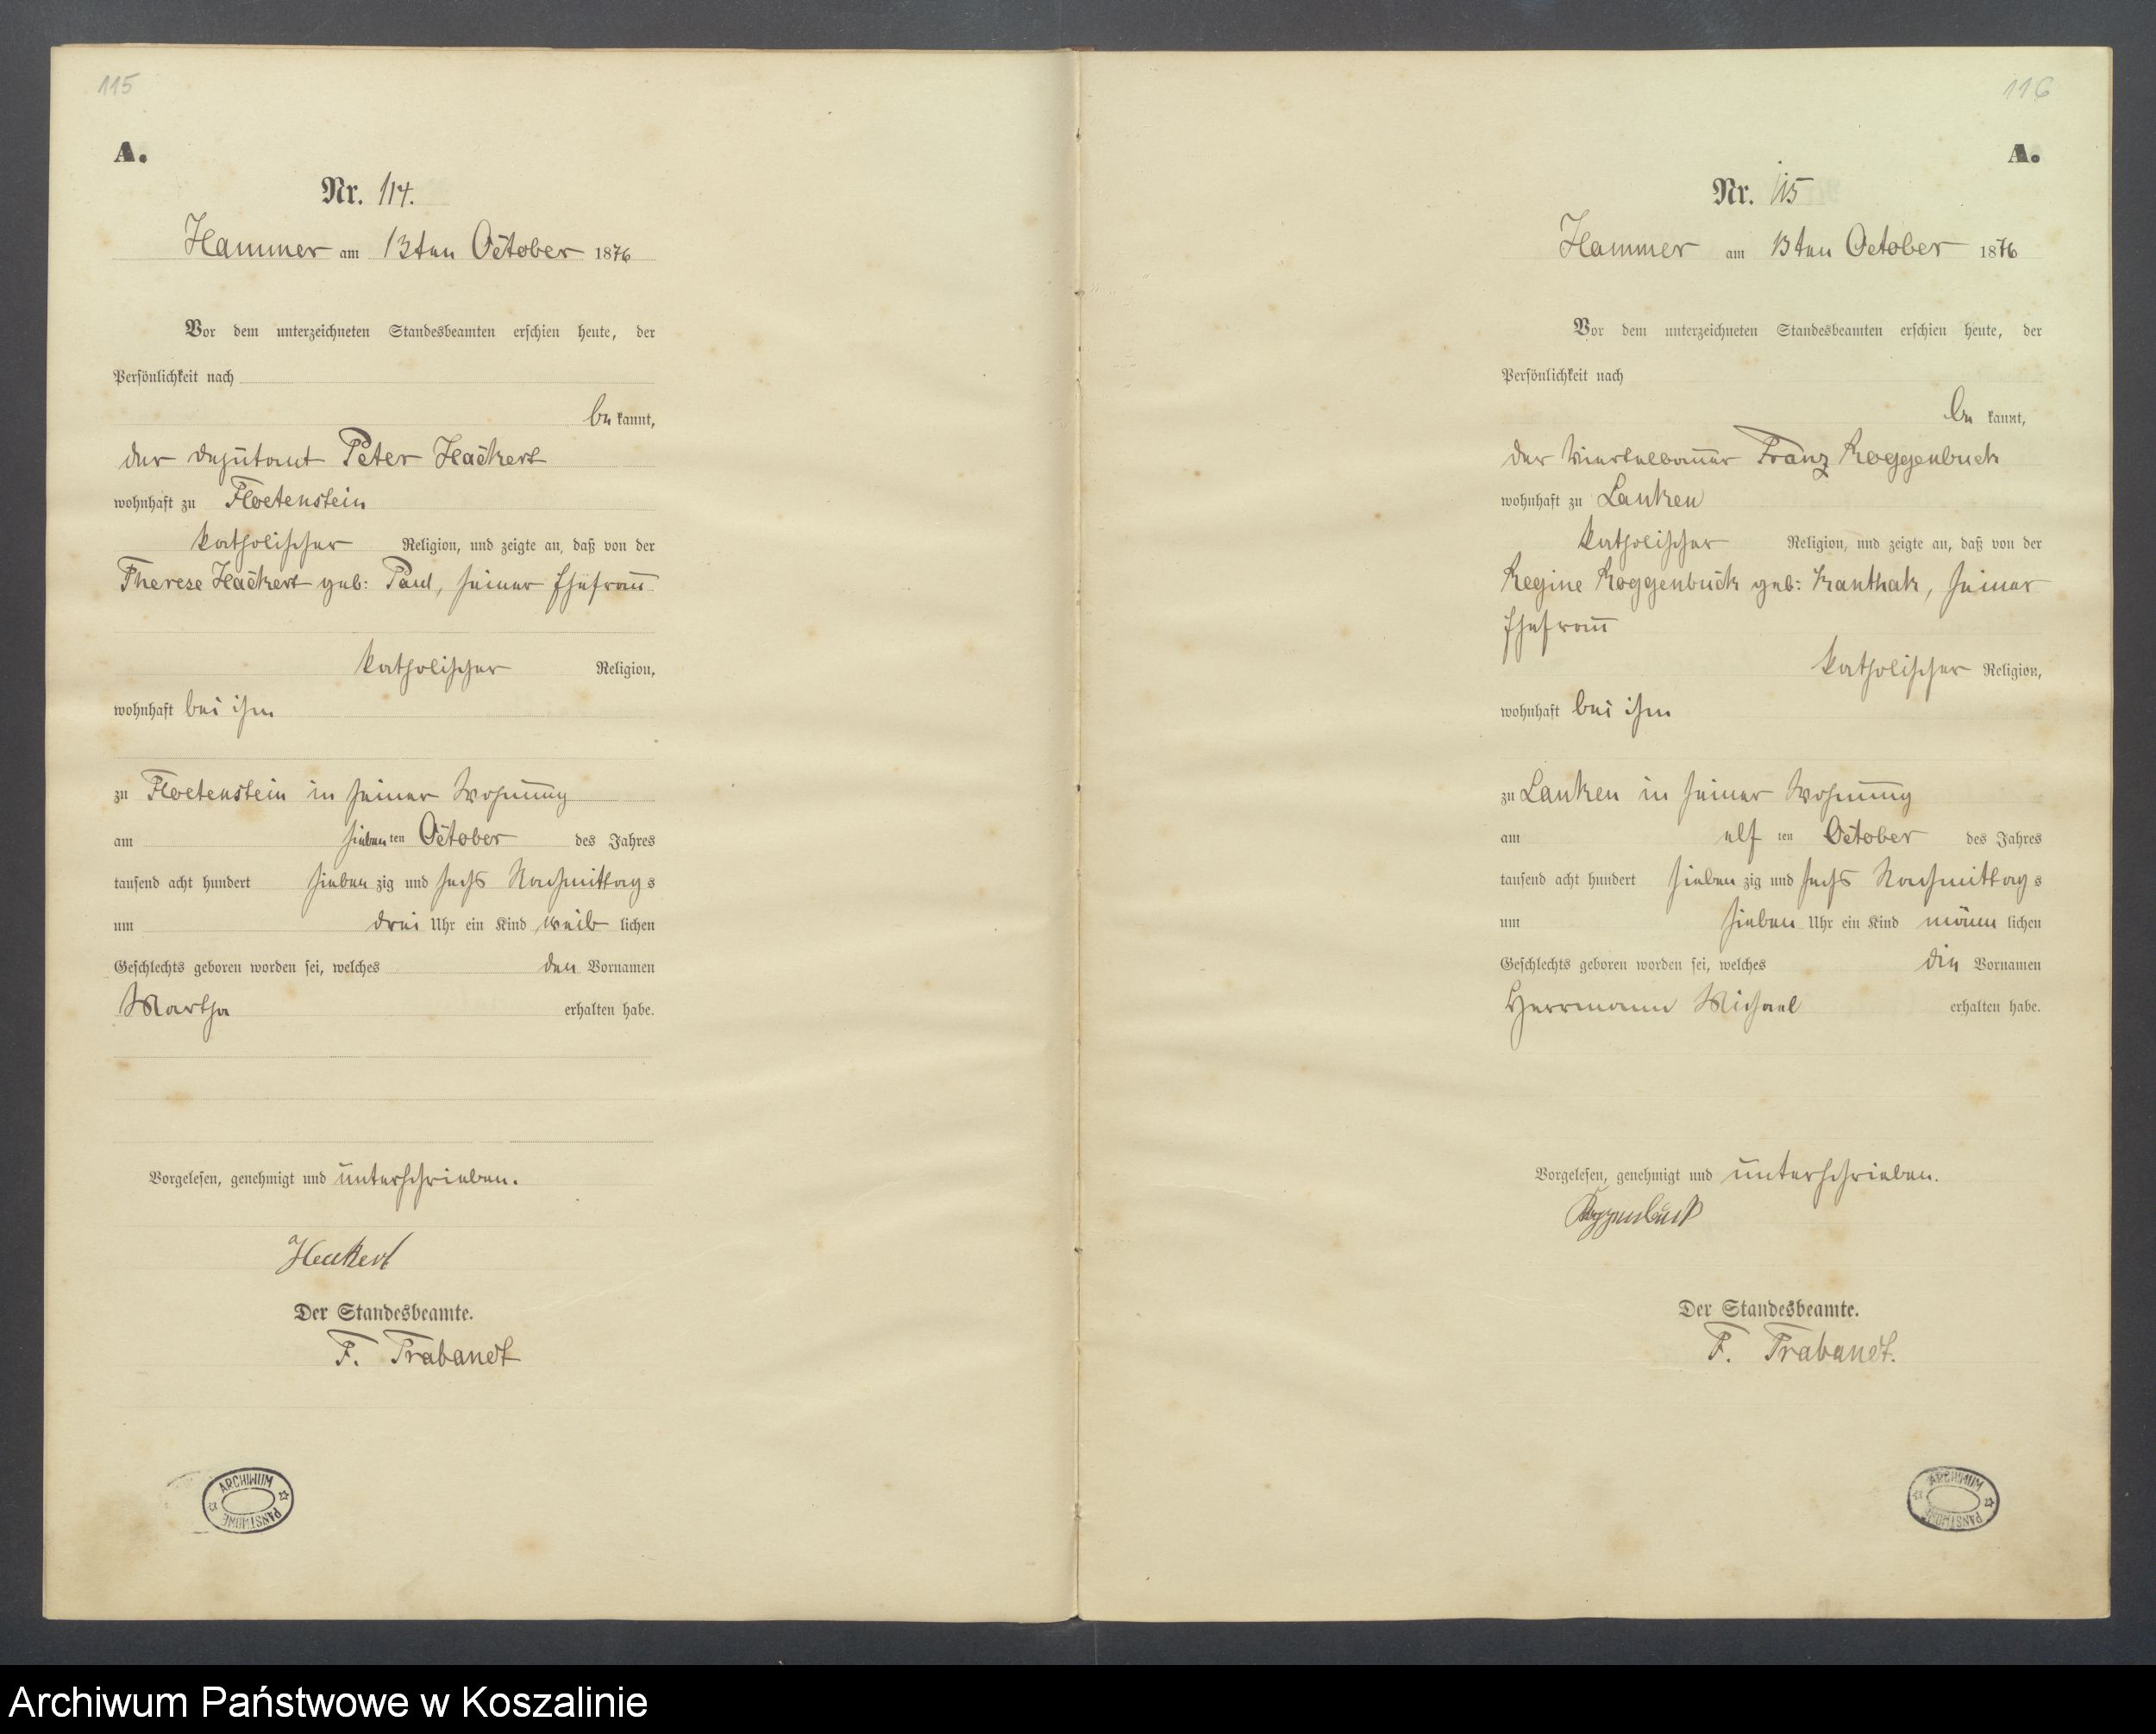 115
A.
Nr. 114.
Hammer am 13ten October 1876
Vor dem unterzeichneten Standesbeamten erschien heute, der
Persönlichkeit nach
be kannt,
der Deputant Peter Hackert
wohnhaft zu Floetenstein
katholischer Religion, und zeigte an, daß von der
Therese Hackert geb: Paul, seiner Ehefrau
katholischer Religion,
wohnhaft bei ihm
zu Floetenstein in seiner Wohnung
am sieben ten October des Jahres
tausend acht hundert sieben zig und sechs Nachmittag s
um drei Uhr ein Kind weib lichen
Geschlechts geboren worden sei, welches den Vornamen
Martha erhalten habe.
Vorgelesen, genehmigt und unterschrieben.
Hackert
Der Standesbeamte.
F. Trabandt
ARCHIWUM PAŃSTWOWE
116
A.
Nr. 115
Hammer am 13ten October 1876
Vor dem unterzeichneten Standesbeamten erschien heute, der
Persönlichkeit nach
be kannt,
der Viertelbauer Franz Roggenbuck
wohnhaft zu Lanken
katholischer Religion, und zeigte an, daß von der
Regine Roggenbuck geb: Kanthak, seiner
Ehefrau
katholischer Religion,
wohnhaft bei ihm
zu Lanken in seiner Wohnung
am elf ten October des Jahres
tausend acht hundert sieben zig und sechs Nachmittag s
um sieben Uhr ein Kind männ lichen
Geschlechts geboren worden sei, welches die Vornamen
Herrmann Michael erhalten habe.
Vorgelesen, genehmigt und unterschrieben.
Roggenbuck
Der Standesbeamte.
F. Trabandt.
ARCHIWUM PAŃSTWOWE
Archiwum Państwowe w Koszalinie